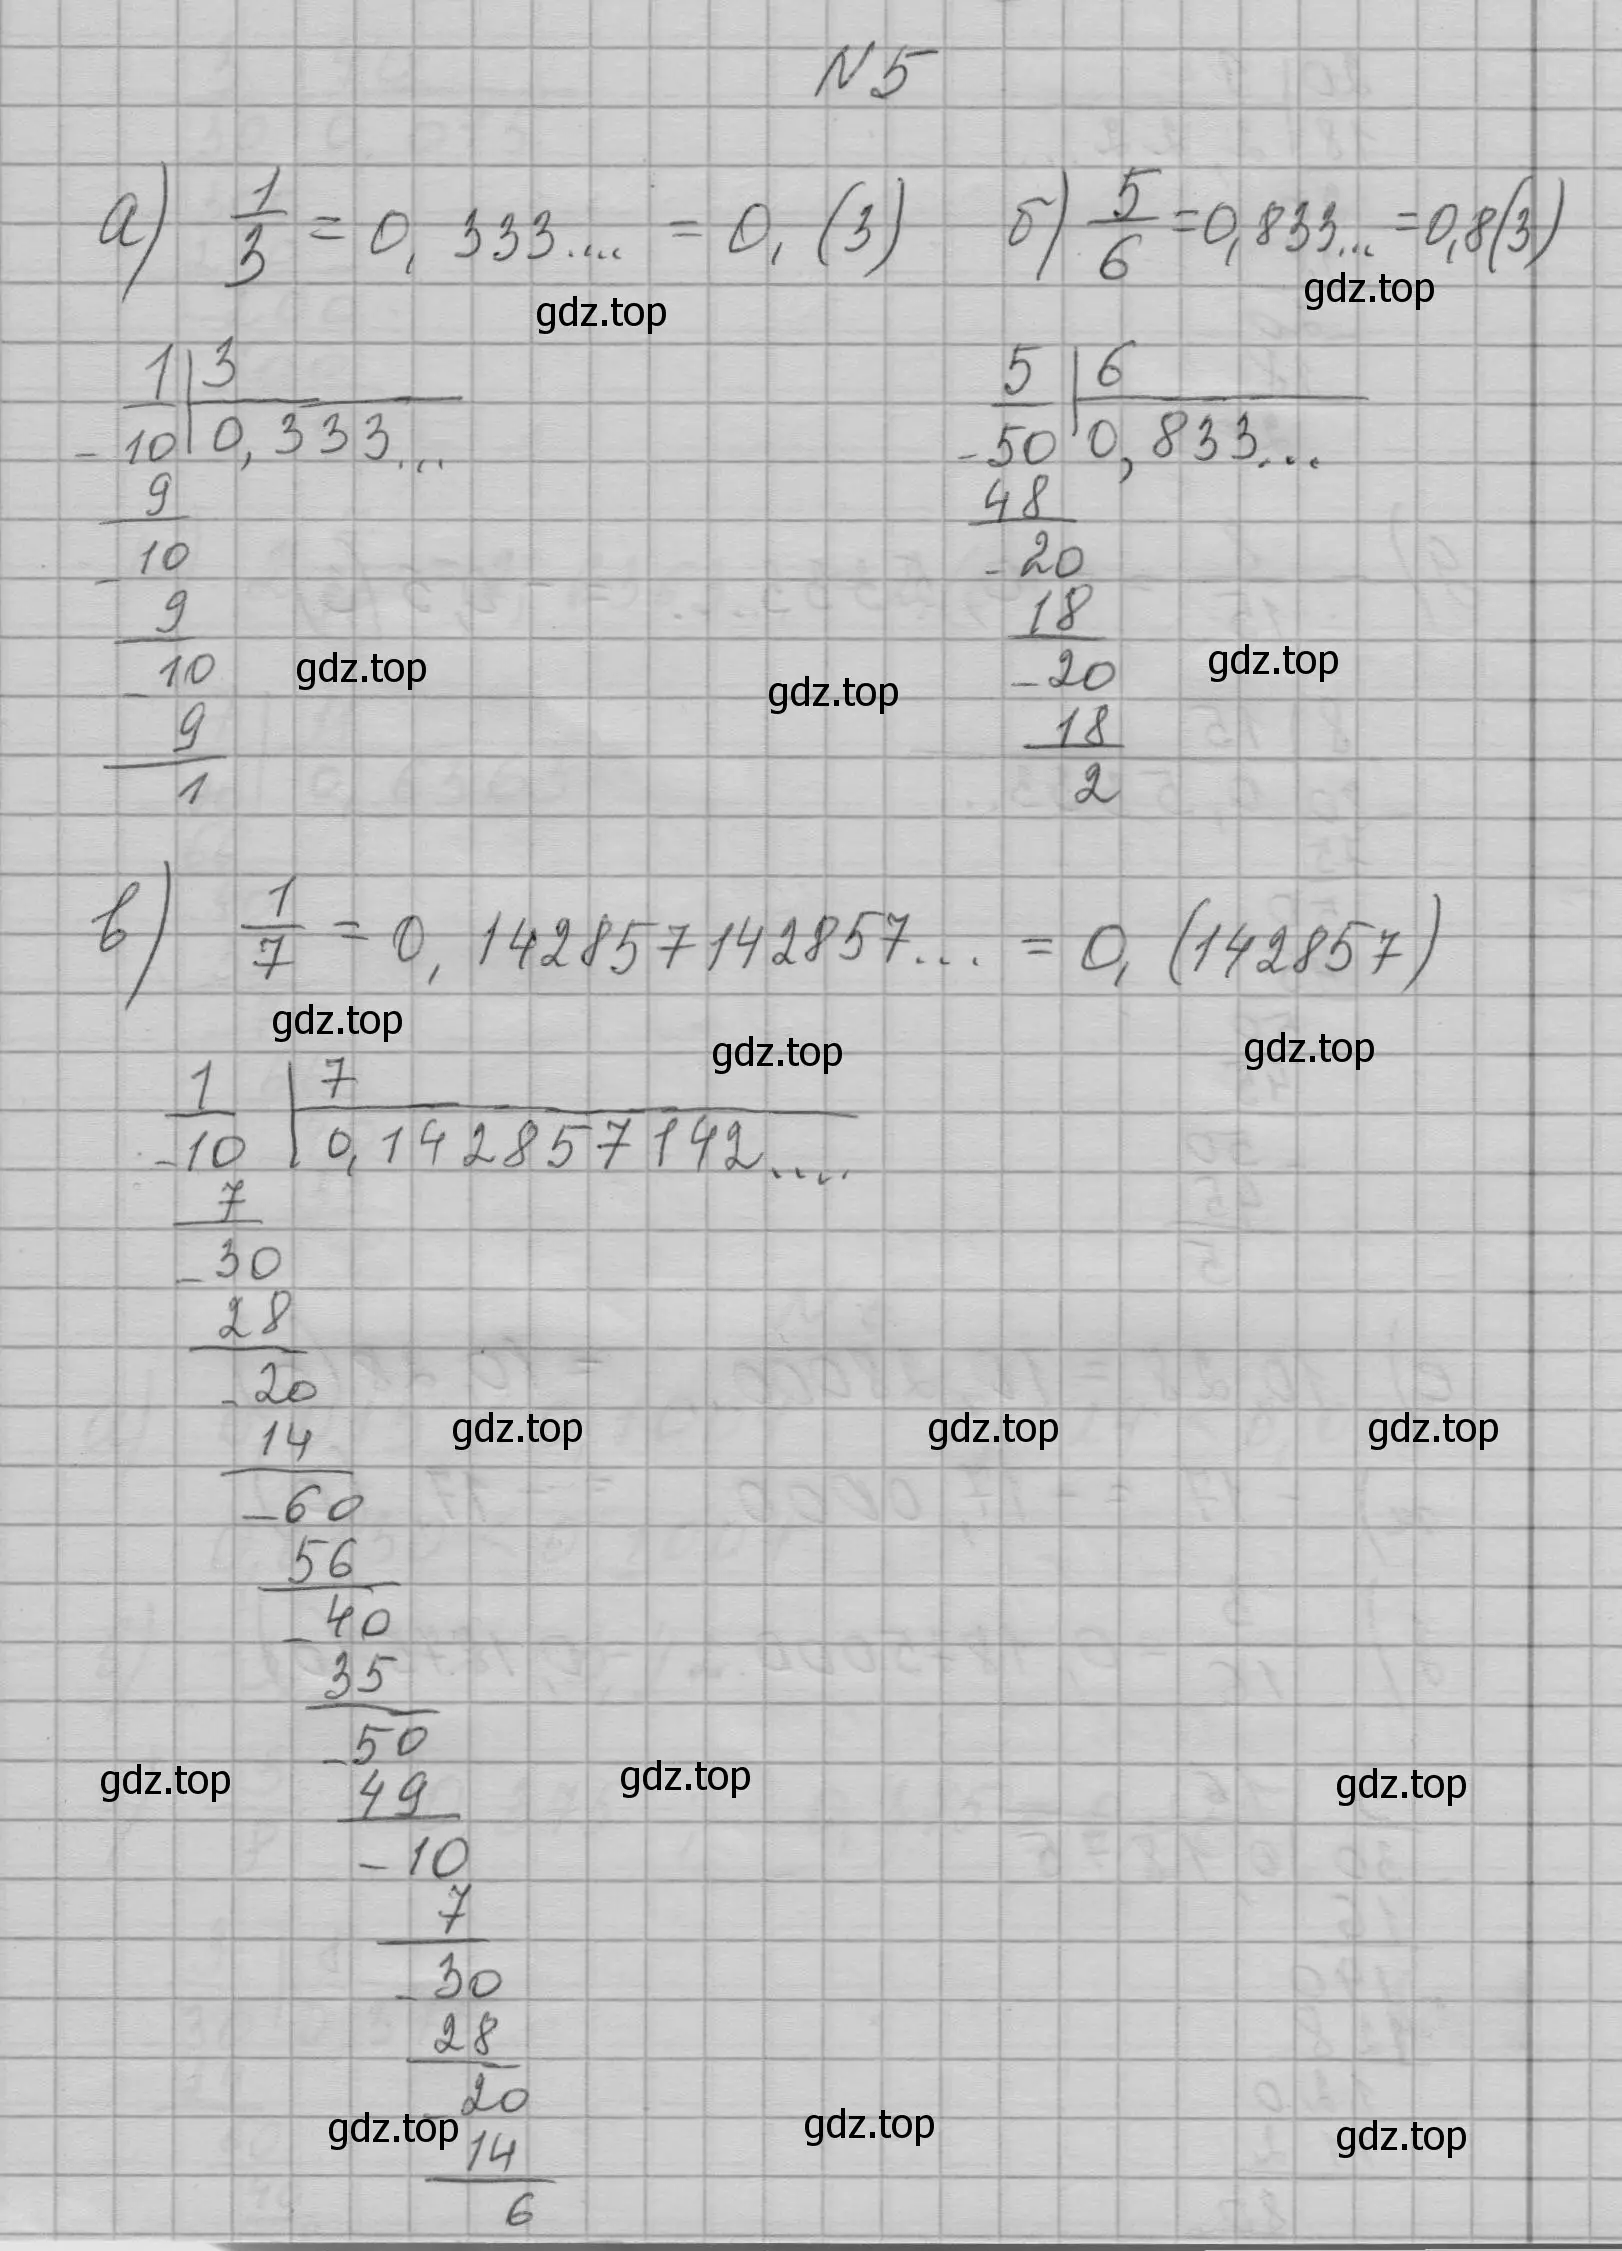 N 5
а) 1/3 = 0, 333.... = 0, (3) б) 5/6 = 0,833... = 0,8(3)
gdz.top
gdz.top
1 | 3 5 | 6
- 10 | 0, 333... - 50 | 0, 833...
9 48
- 10 - 20
9 18
- 10 gdz.top gdz.top - 20 gdz.top
9 18
1 2
в) 1/7 = 0, 142857142857... = 0, (142857)
gdz.top gdz.top gdz.top
1 | 7
- 10 | 0, 142857142....
7
- 30
28
- 20
14 gdz.top gdz.top gdz.top
- 60
56
- 40
35
- 50
gdz.top 49 gdz.top gdz.top
- 10
7
- 30
28
- 20
gdz.top gdz.top gdz.top
14
6